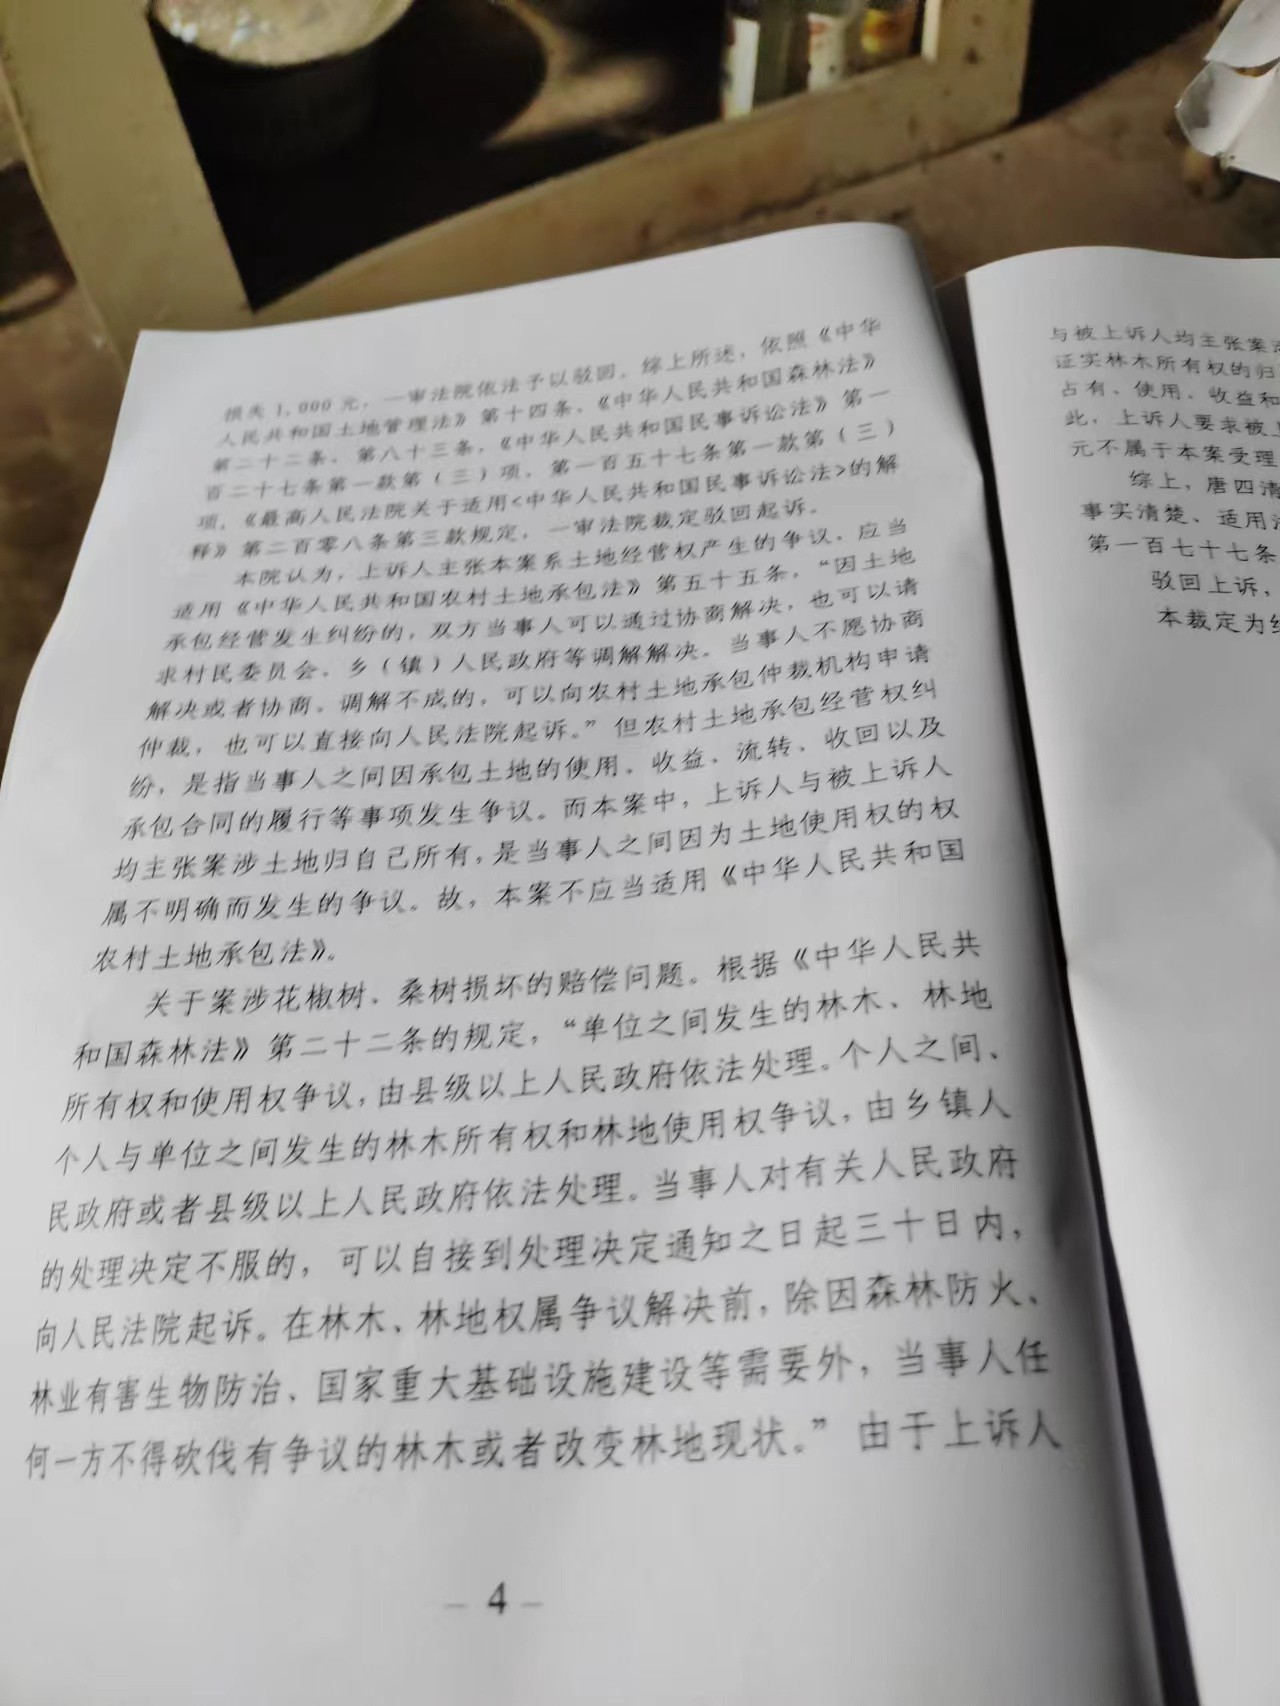 损失1,000元，一审法院依法予以驳回。综上所述，依照《中华
人民共和国土地管理法》第十四条、《中华人民共和国森林法》
第二十二条、第八十三条，《中华人民共和国民事诉讼法》第一
百二十七条第一款第（三）项、第一百五十七条第一款第（三）
项，《最高人民法院关于适用<中华人民共和国民事诉讼法>的解
释》第二百零八条第三款规定，一审法院裁定驳回起诉。
本院认为，上诉人主张本案系土地经营权产生的争议，应当
适用《中华人民共和国农村土地承包法》第五十五条，“因土地
承包经营发生纠纷的，双方当事人可以通过协商解决，也可以请
求村民委员会、乡（镇）人民政府等调解解决。当事人不愿协商
解决或者协商、调解不成的，可以向农村土地承包仲裁机构申请
仲裁，也可以直接向人民法院起诉。”但农村土地承包经营权纠
纷，是指当事人之间因承包土地的使用、收益、流转、收回以及
承包合同的履行等事项发生争议。而本案中，上诉人与被上诉人
均主张案涉土地归自己所有，是当事人之间因为土地使用权的权
属不明确而发生的争议。故，本案不应当适用《中华人民共和国
农村土地承包法》。
关于案涉花椒树、桑树损坏的赔偿问题。根据《中华人民共
和国森林法》第二十二条的规定，“单位之间发生的林木、林地
所有权和使用权争议，由县级以上人民政府依法处理。个人之间、
个人与单位之间发生的林木所有权和林地使用权争议，由乡镇人
民政府或者县级以上人民政府依法处理。当事人对有关人民政府
的处理决定不服的，可以自接到处理决定通知之日起三十日内，
向人民法院起诉。在林木、林地权属争议解决前，除因森林防火、
林业有害生物防治、国家重大基础设施建设等需要外，当事人任
何一方不得砍伐有争议的林木或者改变林地现状。”由于上诉人
— 4 —
与被上诉人均主张案
证实林木所有权的归
占有、使用、收益和
此，上诉人要求被
元不属于本案受理
综上，唐四清
事实清楚、适用
第一百七十七条
驳回上诉，
本裁定为